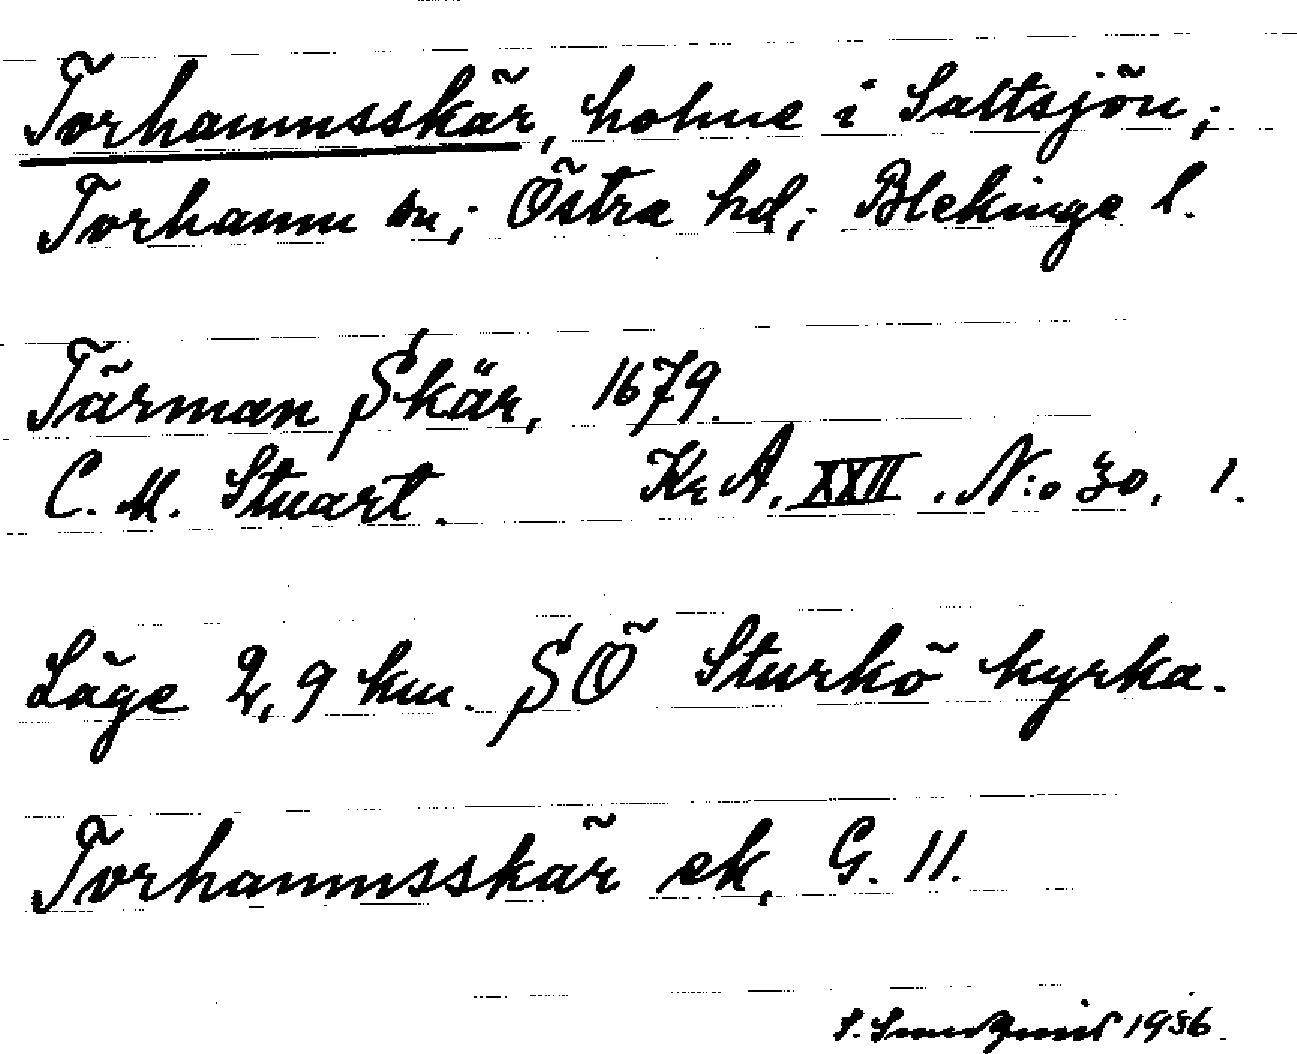 Torhamnsskär, holme i Saltsjön;
Torhamn sn; Östra hd; Blekinge l.
Tärman Skär, 1679.
C. M. Stuart. KrA, XXII. N:o 30, 1.
Läge 2,9 km. SÖ Sturkö kyrka.
Torhamnsskär ek, G. 11.
S. 1936.